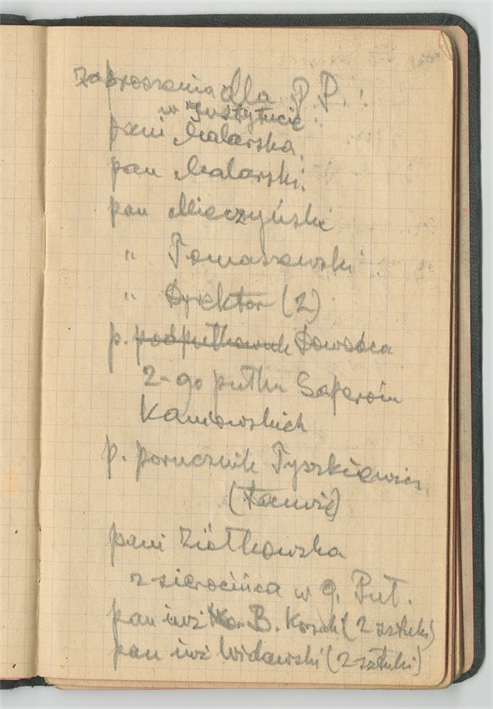 zaproszenia dla P.P. :
w Instytucie
pani Malarska.
pan Malarski.
pan Mieczyński
" Tomaszewski
" Dyrektor (2)
p. podpułkownik Dowódca
2-go pułku Saperów
Kaniowskich
p. porucznik Tyszkiewicz.
pani Ziółkowska
z sierocińca w g. Puł.
pan inż B. Kozak (2 sztuki)
pan inż Widawski (2 sztuki)